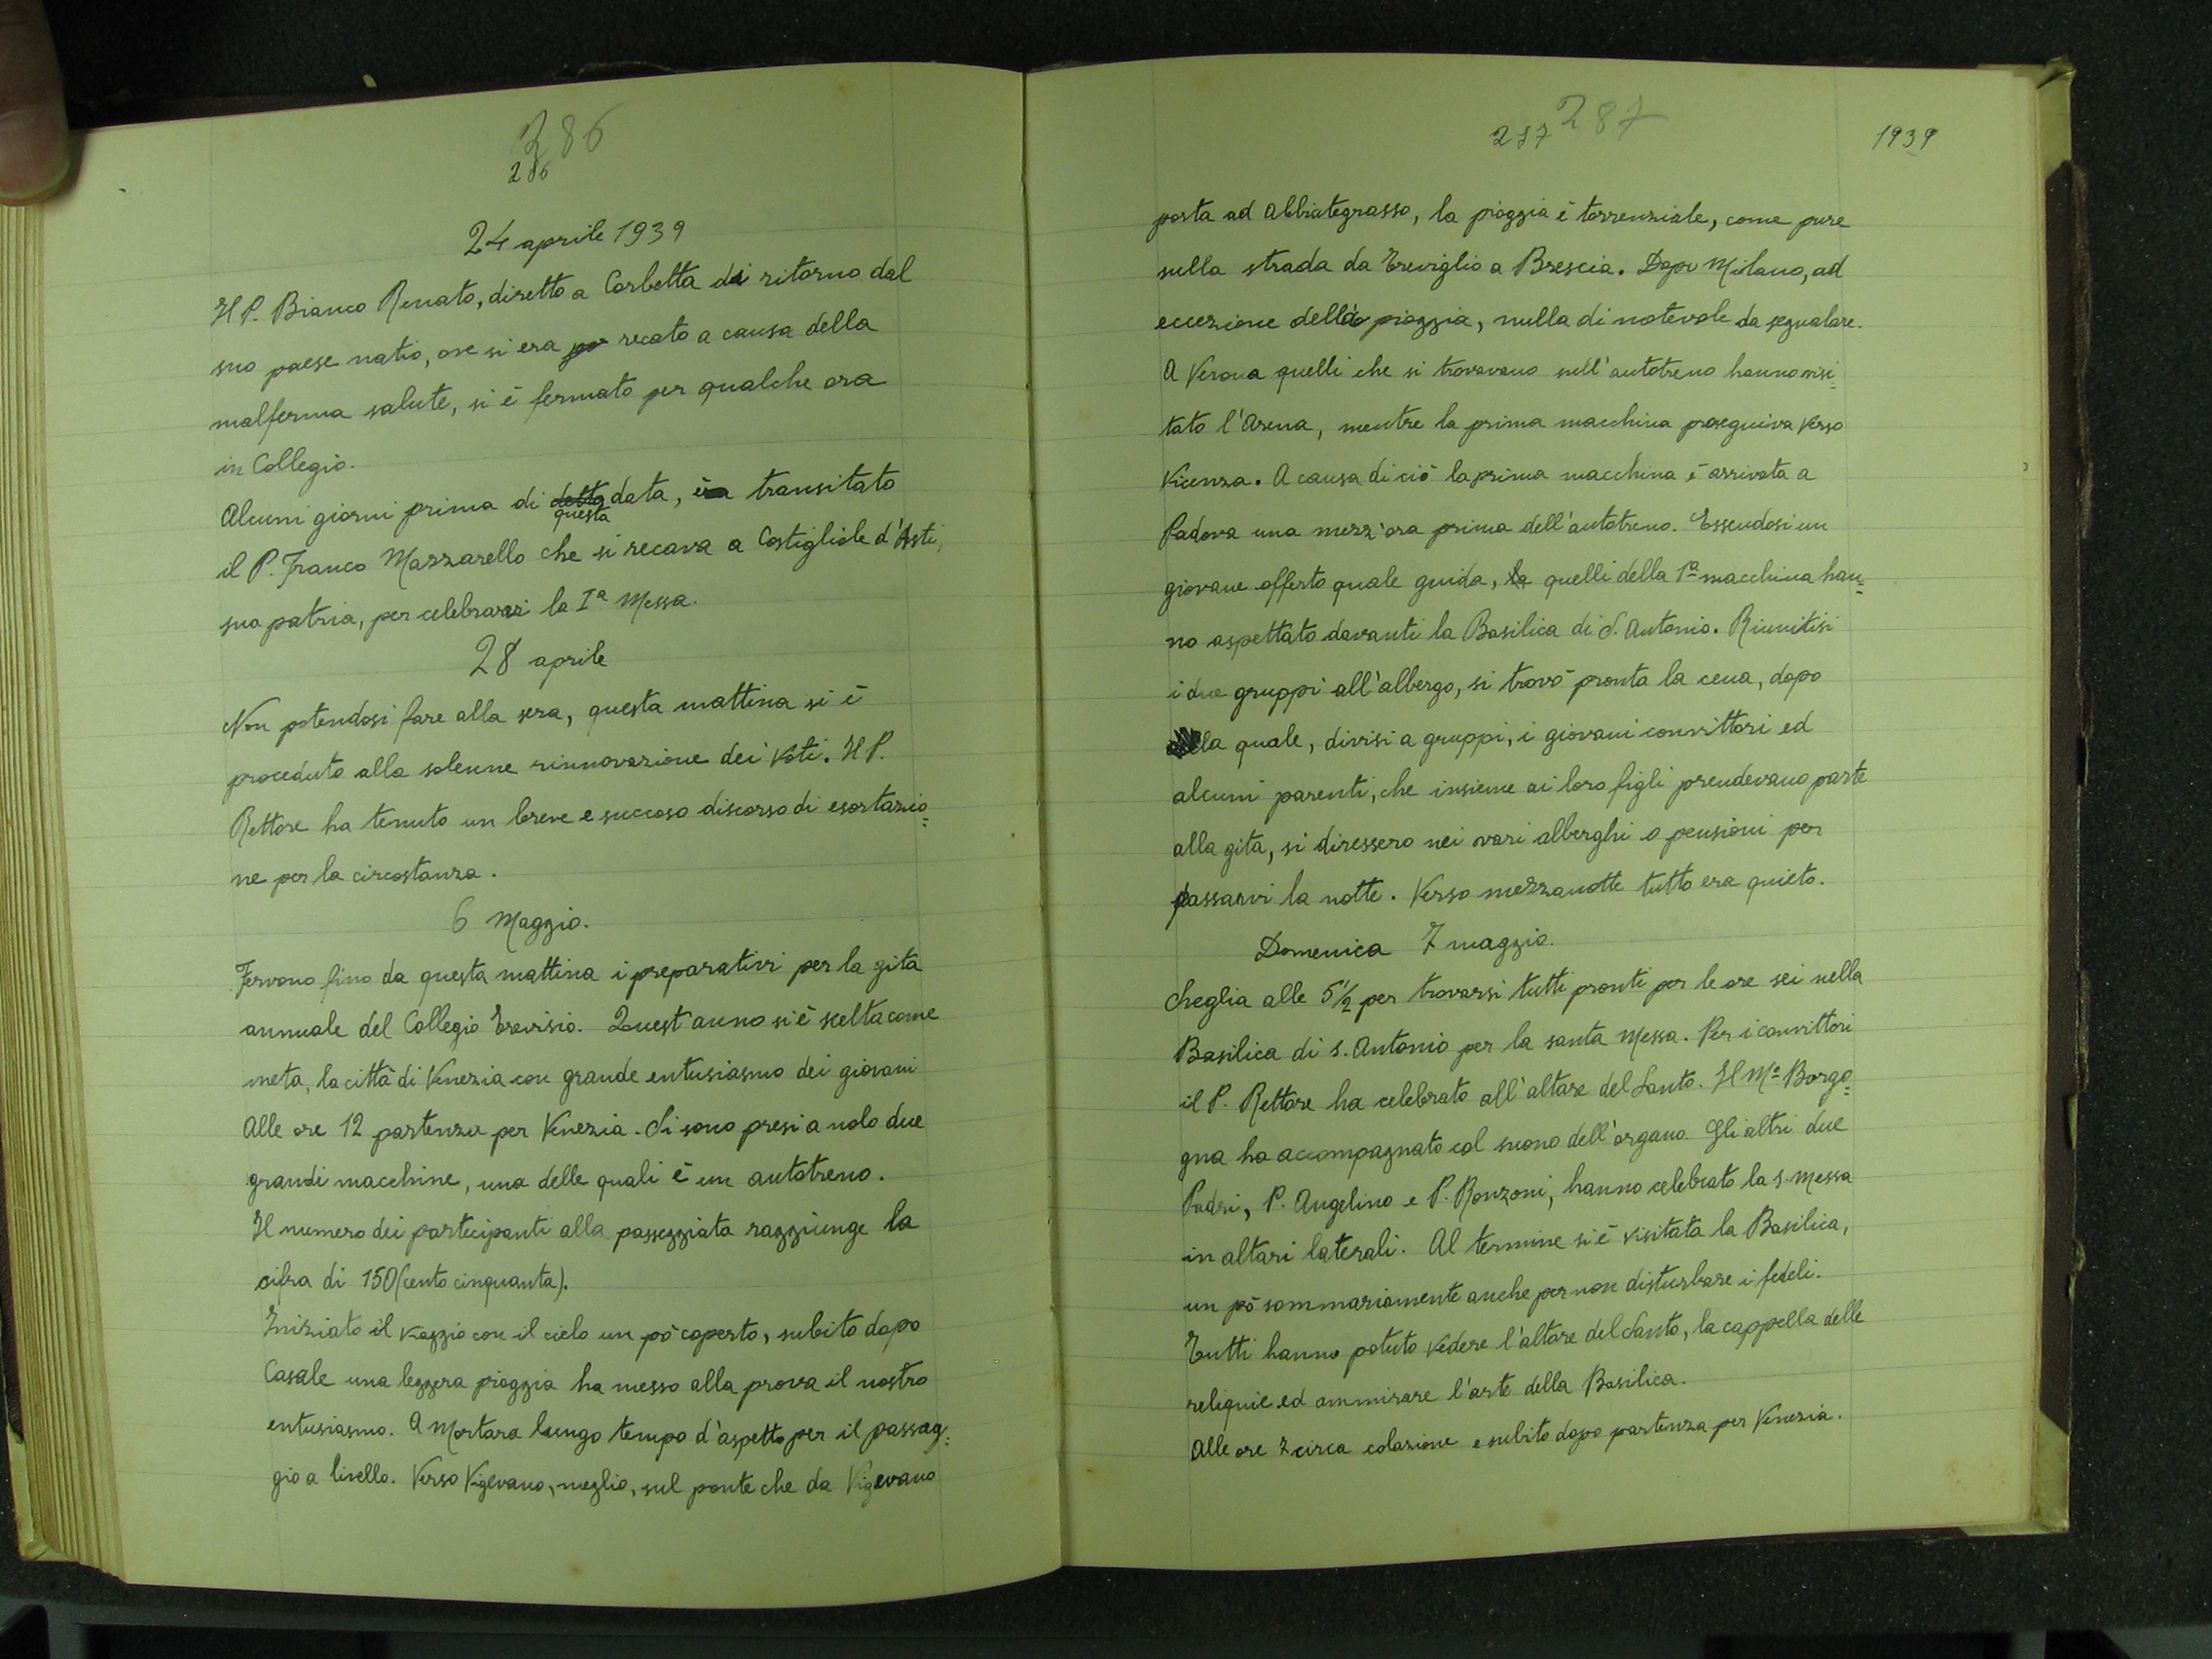 286
286
24 aprile 1939
Il P. Bianco Renato, diretto a Corbetta di ritorno dal
suo paese natio, ove si era recato a causa della
malferma salute, si è fermato per qualche ora
in Collegio.
Alcuni giorni prima di detta questa data, è transitato
il P. Franco Mazzarello che si recava a Costigliole d'Asti,
sua patria, per celebrarvi la Iª Messa.
28 aprile
Non potendosi fare alla sera, questa mattina si è
proceduto alla solenne rinnovazione dei voti. Il P.
Rettore ha tenuto un breve e succoso discorso di esortazio=
ne per la circostanza.
6 Maggio.
Fervono fino da questa mattina i preparativi per la gita
annuale del Collegio Trevisio. Quest'anno si è scelta come
meta, la città di Venezia con grande entusiasmo dei giovani
Alle ore 12 partenza per Venezia. Si sono presi a nolo due
grandi macchine, una delle quali è un autotreno.
Il numero dei partecipanti alla passeggiata raggiunge la
cifra di 150 (cento cinquanta).
Iniziato il viaggio con il cielo un pò coperto, subito dopo
Casale una leggera pioggia ha messo alla prova il nostro
entusiasmo. A Mortara lungo tempo d'aspetto per il passag=
gio a livello. Verso Vigevano, meglio, sul ponte che da Vigevano
287 287
1939
porta ad Abbiategrasso, la pioggia è torrenziale, come pure
sulla strada da Treviglio a Brescia. Dopo Milano, ad
eccezione della pioggia, nulla di notevole da segnalare.
A Verona quelli che si trovavano sull'autotreno hanno visi=
tato l'Arena, mentre la prima macchina proseguiva verso
Vicenza. A causa di ciò la prima macchina è arrivata a
Padova una mezz'ora prima dell'autotreno. Essendosi un
giovane offerto quale guida, la quelli della 1ª macchina han=
no aspettato davanti la Basilica di S. Antonio. Riunitisi
i due gruppi all'albergo, si trovò pronta la cena, dopo
la quale, divisi a gruppi, i giovani convittori ed
alcuni parenti, che insieme ai loro figli prendevano parte
alla gita, si diressero nei vari alberghi o pensioni per
passarvi la notte. Verso mezzanotte tutto era quieto.
Domenica 7 maggio.
Sveglia alle 5½ per trovarsi tutti pronti per le ore sei nella
Basilica di S. Antonio per la santa Messa. Per i convittori
il P. Rettore ha celebrato all'altare del Santo. Il Mº Borgo=
gna ha accompagnato col suono dell'organo. Gli altri due
Padri, P. Angelino e P. Ronzoni, hanno celebrato la S. Messa
in altari laterali. Al termine si è visitata la Basilica,
un pò sommariamente anche per non disturbare i fedeli.
Tutti hanno potuto vedere l'altare del Santo, la cappella delle
reliquie ed ammirare l'arte della Basilica.
Alle ore 7 circa colazione e subito dopo partenza per Venezia.